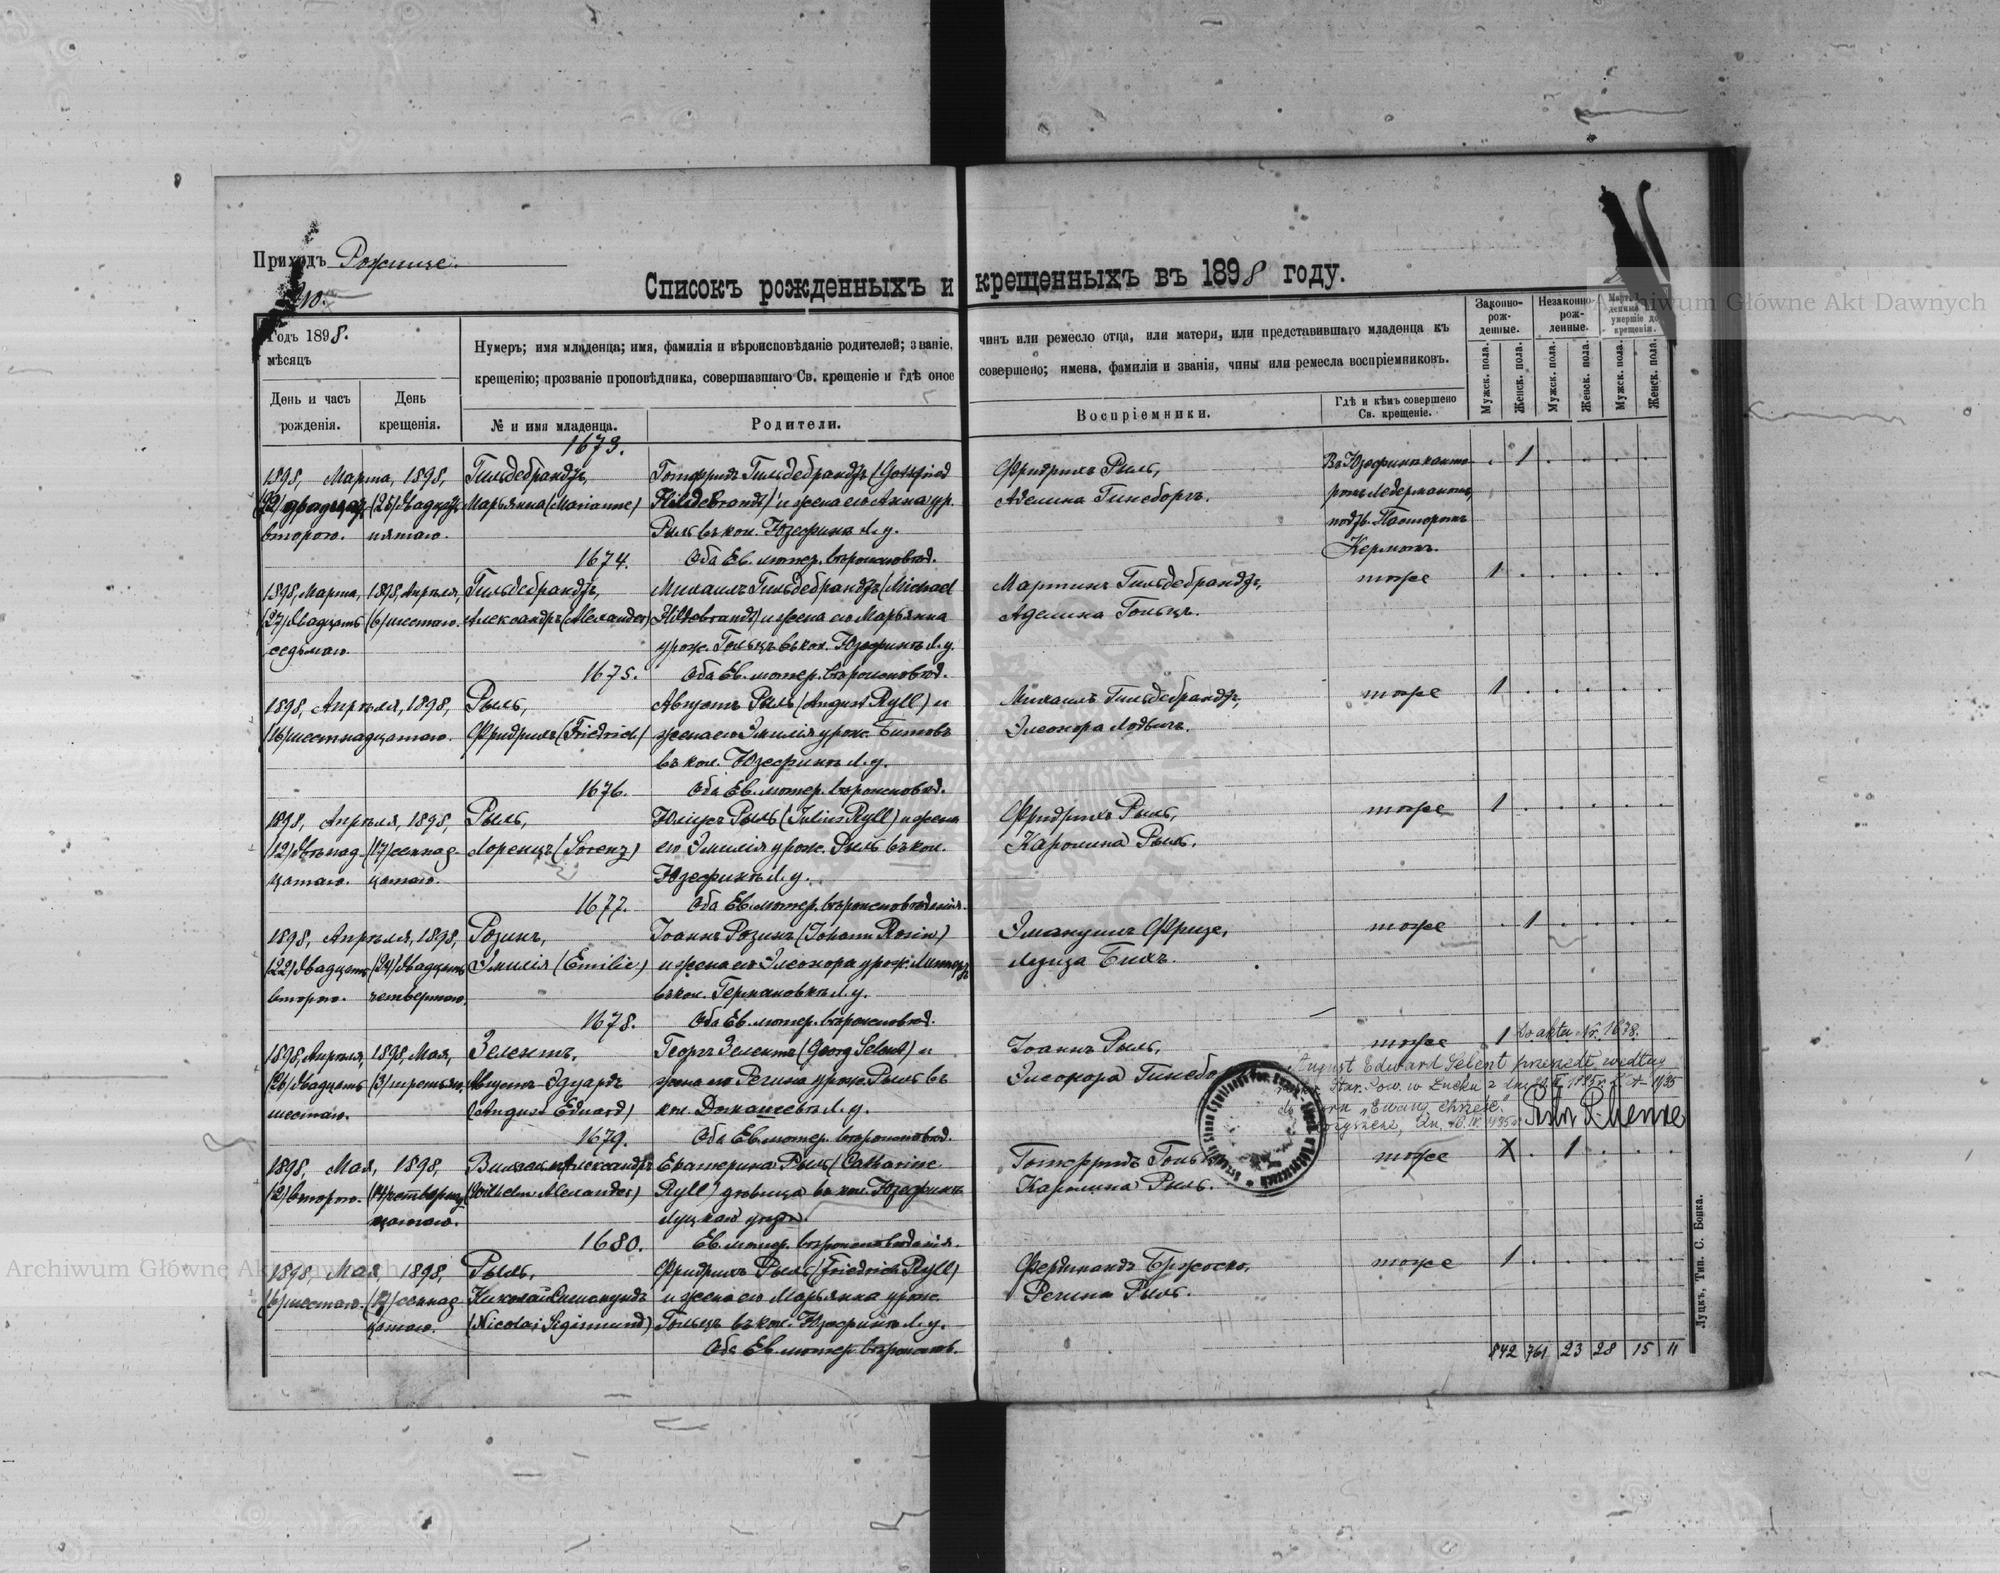 Приходъ Рожище.
210.
Списокъ рожденныхъ и крещенныхъ въ 1898 году.
Годъ 1898.
мѣсяцъ
День и часъ рожденія.
День крещенія.
Нумеръ; имя младенца; имя, фамилія и вѣроисповѣданіе родителей; званіе,
крещенію; прозваніе проповѣдника, совершавшаго Св. крещеніе и гдѣ оное
№ и имя младенца.
Родители.
чинъ или ремесло отца, или матери, или представившаго младенца къ
совершено; имена, фамиліи и званія, чины или ремесла воспріемниковъ.
Воспріемники.
Гдѣ и кѣмъ совершено Св. крещеніе.
Законно-рож-денные.
Незаконно-рож-ленные.
умершіе до крещенія.
Мужск. пола.
Женск. пола.
Мужск. пола.
Женск. пола.
Мужск. пола.
Женск. пола.
1673.
1898, Марта, 1898, Гильдебрандъ, Готфридъ Гильдебрандъ (Gottfried Фридрихъ Рыль, 1
второго. пятаго. Марьянна (Marianne) Hildebrandt) и жена его Анна ур. Аделина Гинсборгъ.
Рыль въ кол. Юзефинъ Л. у. подъ. Пасторомъ
Керномъ.
1674. Оба Ев. лютер. вѣроисповѣд.
1898, Марта, 1898, Апрѣля, Гильдебрандъ, Михаилъ Гильдебрандъ (Michael Мартинъ Гильдебрандъ, тоже 1
(27) двадцать (6) шестаго. Александръ (Alexander) Hildebrandt) и жена его Марьянна Аделина Гольцъ.
седьмаго урож. Гольцъ въ кол. Юзефинъ Л. у.
1675. Оба Ев. лютер. вѣроисповѣд.
1898, Апрѣля, 1898, Рыль, Августъ Рыль (August Ryll) и Михаилъ Гильдебрандъ, тоже 1
(16) шестнадцатаго. Фридрихъ (Friedrich) жена его Эмилія урож. Элеонора
въ кол. Юзефинъ Л. у.
1676. Оба Ев. лютер. вѣроисповѣд.
1898, Апрѣля, 1898, Рыль, Юлиусъ Рыль (Julius Ryll) и жена Фридрихъ Рыль, тоже 1
(12) двѣнад- (17) семнад- Лоренцъ (Lorenz) его Эмилія урож. Рыль въ кол. Каролина Рыль.
цатаго. цатаго. Юзефинъ Л. у.
1677. Оба Ев. лютер. вѣроисповѣданія.
1898, Апрѣля, 1898, Розинъ, Іоаннъ Розинъ (Johann Rosin) Эмануилъ Фризе, тоже 1
(22) двадцать (24) двадцать Эмилія (Emilie) и жена его Элеонора урож. Луиза Бихъ.
второго. четвертаго. въ кол. Германовкѣ Л. у.
1678. Оба Ев. лютер. вѣроисповѣд.
1898, Апрѣля, 1898, Мая, Зелентъ, Георгъ Зелентъ (Georg Selent) и Іоаннъ Рыль, тоже 1
(26) двадцать (3) третьяго. Августъ Эдуардъ жена его Регина урож. Рыль въ Элеонора
шестаго. (August Eduard) кол. Домашевѣ Л. у.
Do aktu Nr. 1678.
August Edward Selent przeszedł według
Star. Pow. w Łucku z dn.
"Ewang. chrześc."
Rożyszcze,
1679. Оба Ев. лютер. вѣроисповѣд.
1898, Мая, 1898, Вильгельмъ Александръ Екатерина Рыль (Catharine Готфридъ Гольцъ тоже 1
(2) второго. (14) четырнад- (Wilhelm Alexander) Ryll) дѣвица въ кол. Юзефинъ Каролина Рыль.
цатаго. Луцкаго уѣзда.
1680. Ев. лютер. вѣроисповѣданія.
1898, Мая, 1898, Рыль, Фридрихъ Рыль (Friedrich Ryll) Фердинандъ тоже 1
(6) шестаго. (17) семнад- Николай Сигизмундъ и жена его Марьянна урож. Регина Рыль.
цатаго. (Nicolai Sigismund) Гольцъ въ кол. Юзефинъ Л. у.
Оба Ев. лютер. вѣроисповѣд.
842 761 23 28 15 11
Луцкъ, Тип. С. Бонка.
Archiwum Główne Akt Dawnych
Archiwum Główne Akt Dawnych